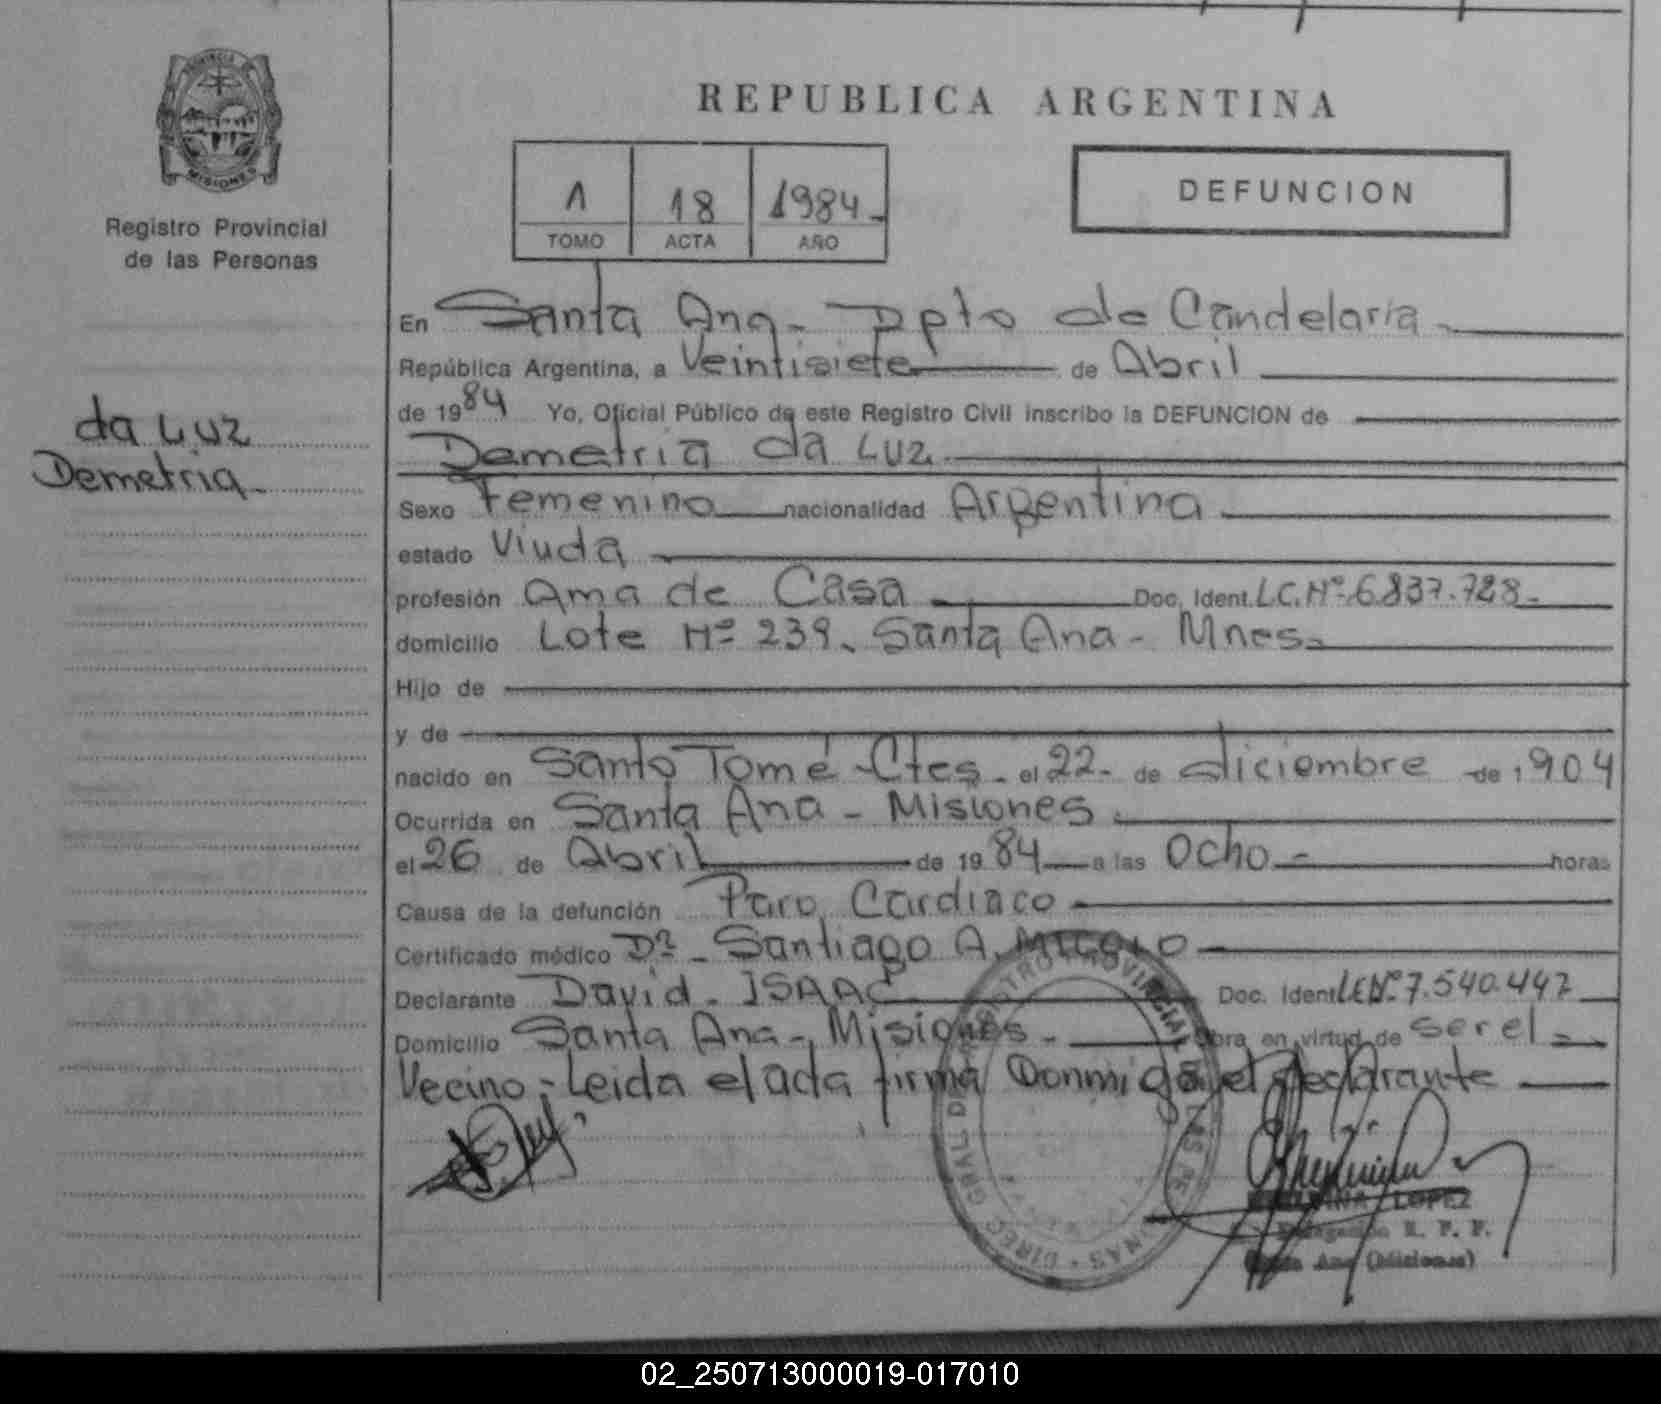 PROVINCIA DE
MISIONES
Registro Provincial
de las Personas
da Luz
Demetria-
REPUBLICA ARGENTINA
1 18 1984-
TOMO ACTA AÑO
DEFUNCION
En Santa Ana- Dpto de Candelaria-
República Argentina, a Veintisiete de Abril
de 1984 Yo, Oficial Público de este Registro Civil inscribo la DEFUNCION de
Demetria da Luz
Sexo Femenino nacionalidad Argentina
estado Viuda
profesión Ama de Casa Doc. Ident. L.C.Nº 6.837.728-
domicilio Lote Nº 239. Santa Ana - Mnes.
Hijo de
y de
nacido en Santo Tomé - Ctes - el 22- de diciembre de 1904
Ocurrida en Santa Ana - Misiones
el 26 de Abril de 1984 a las Ocho - horas
Causa de la defunción Paro Cardiaco
Certificado médico Dr - Santiago A.
Declarante David - ISAAC Doc. Ident L.E.Nº 7.540.447
Domicilio Santa Ana - Misiones - obra en virtud de ser el
Vecino - Leida el acta firma Conmigo el declarante
LOPEZ
R. P. P.
Santa Ana (Misiones)
02_250713000019-017010